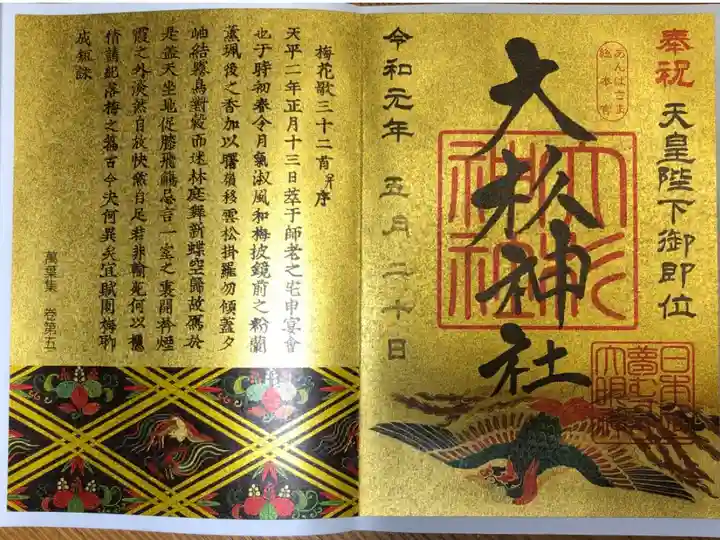 奉祝 天皇陛下御即位
あんばさま
総本宮
大杉神社
大杉
神社
大明神
令和元年 五月二十日
梅花歌三十二首并序
天平二年正月十三日萃于師老之宅申宴會
也于時初春令月氣淑風和梅披鏡前之粉蘭
薫珮後之香加以曙嶺移雲松掛羅而傾蓋夕
岫結霧鳥對縠而迷林庭舞新蝶空歸故鴈於
是蓋天坐地促膝飛觴忘言一室之裏開衿煙
霞之外淡然自放快然自足若非翰苑何以攄
情請紀落梅之篇古今夫何異矣宜賦園梅聊
成短詠
萬葉集 巻第五